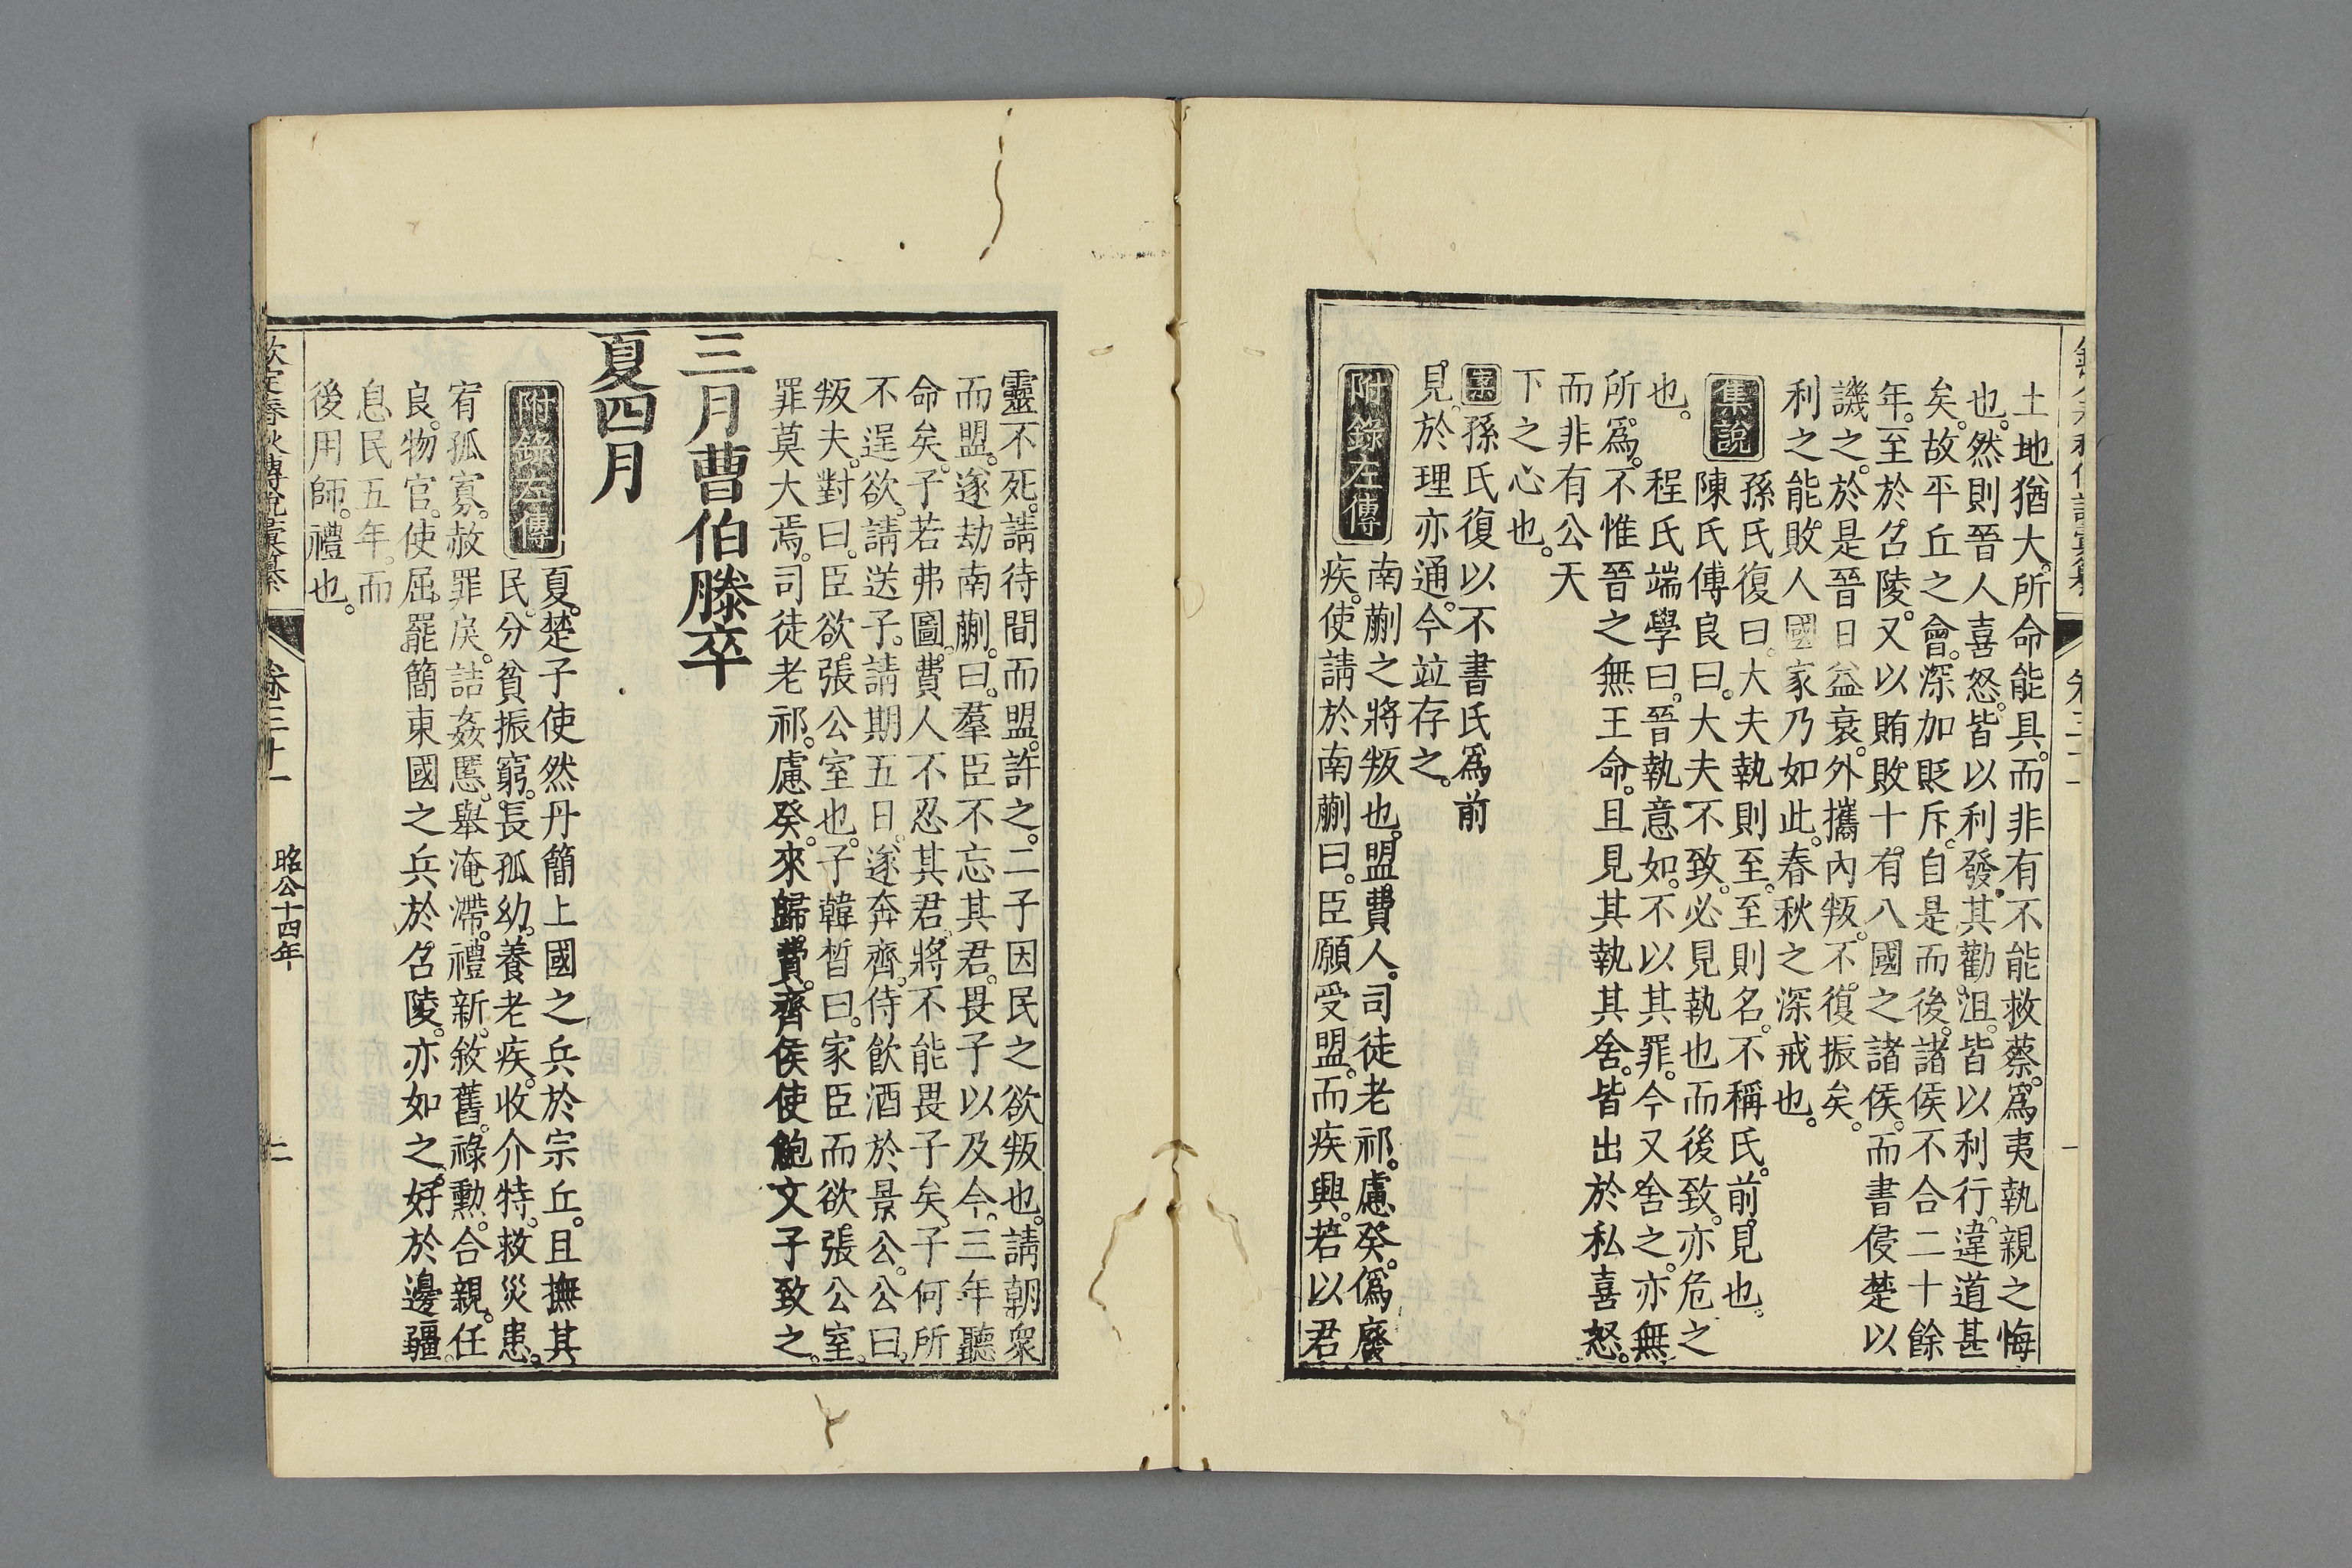 土地猶大。所命能具。而非有不能救蔡。爲夷執親之悔
也。然則晉人喜怒。皆以利發。其勸沮。皆以利行。違道甚
矣。故平丘之會。深加貶斥。自是而後。諸侯不合二十餘
年。至於召陵。又以賄敗十有八國之諸侯。而書侵楚以
譏之。於是晉日益衰。外攜內叛。不復振矣。
利之能敗人國家乃如此。春秋之深戒也。
集說
孫氏復曰。大夫執則至。至則名。不稱氏。前見也。
陳氏傅良曰。大夫不致。必見執也而後致。亦危之
也。
程氏端學曰。晉執意如。不以其罪。今又舍之。亦無
所爲。不惟晉之無王命。且見其執其舍。皆出於私喜怒。
而非有公天
下之心也。
案孫氏復以不書氏爲前
見。於理亦通。今竝存之。
附錄左傳
南蒯之將叛也。盟費人。司徒老祁。慮癸。僞廢
疾。使請於南蒯曰。臣願受盟。而疾興。若以君
靈不死。請待間而盟。許之。二子因民之欲叛也。請朝衆
而盟。遂劫南蒯。曰。羣臣不忘其君。畏子以及今。三年聽
命矣。子若弗圖。費人不忍其君。將不能畏子矣。子何所
不逞欲。請送子。請期五日。遂奔齊。侍飲酒於景公。公曰。
叛夫。對曰。臣欲張公室也。子韓晳曰。家臣而欲張公室。
罪莫大焉。司徒老祁。慮癸。來歸費。齊侯使鮑文子致之。
三月曹伯滕卒
夏四月
附錄左傳
夏。楚子使然丹簡上國之兵於宗丘。且撫其
民。分貧振窮。長孤幼。養老疾。收介特。救災患。
宥孤寡。赦罪戾。詰姦慝。舉淹滯。禮新。敘舊。祿勳。合親。任
良。物官。使屈罷簡東國之兵於召陵。亦如之。好於邊疆。
息民五年。而
後用師。禮也。
欽定春秋傳說彙纂
卷三十一
昭公十四年
二